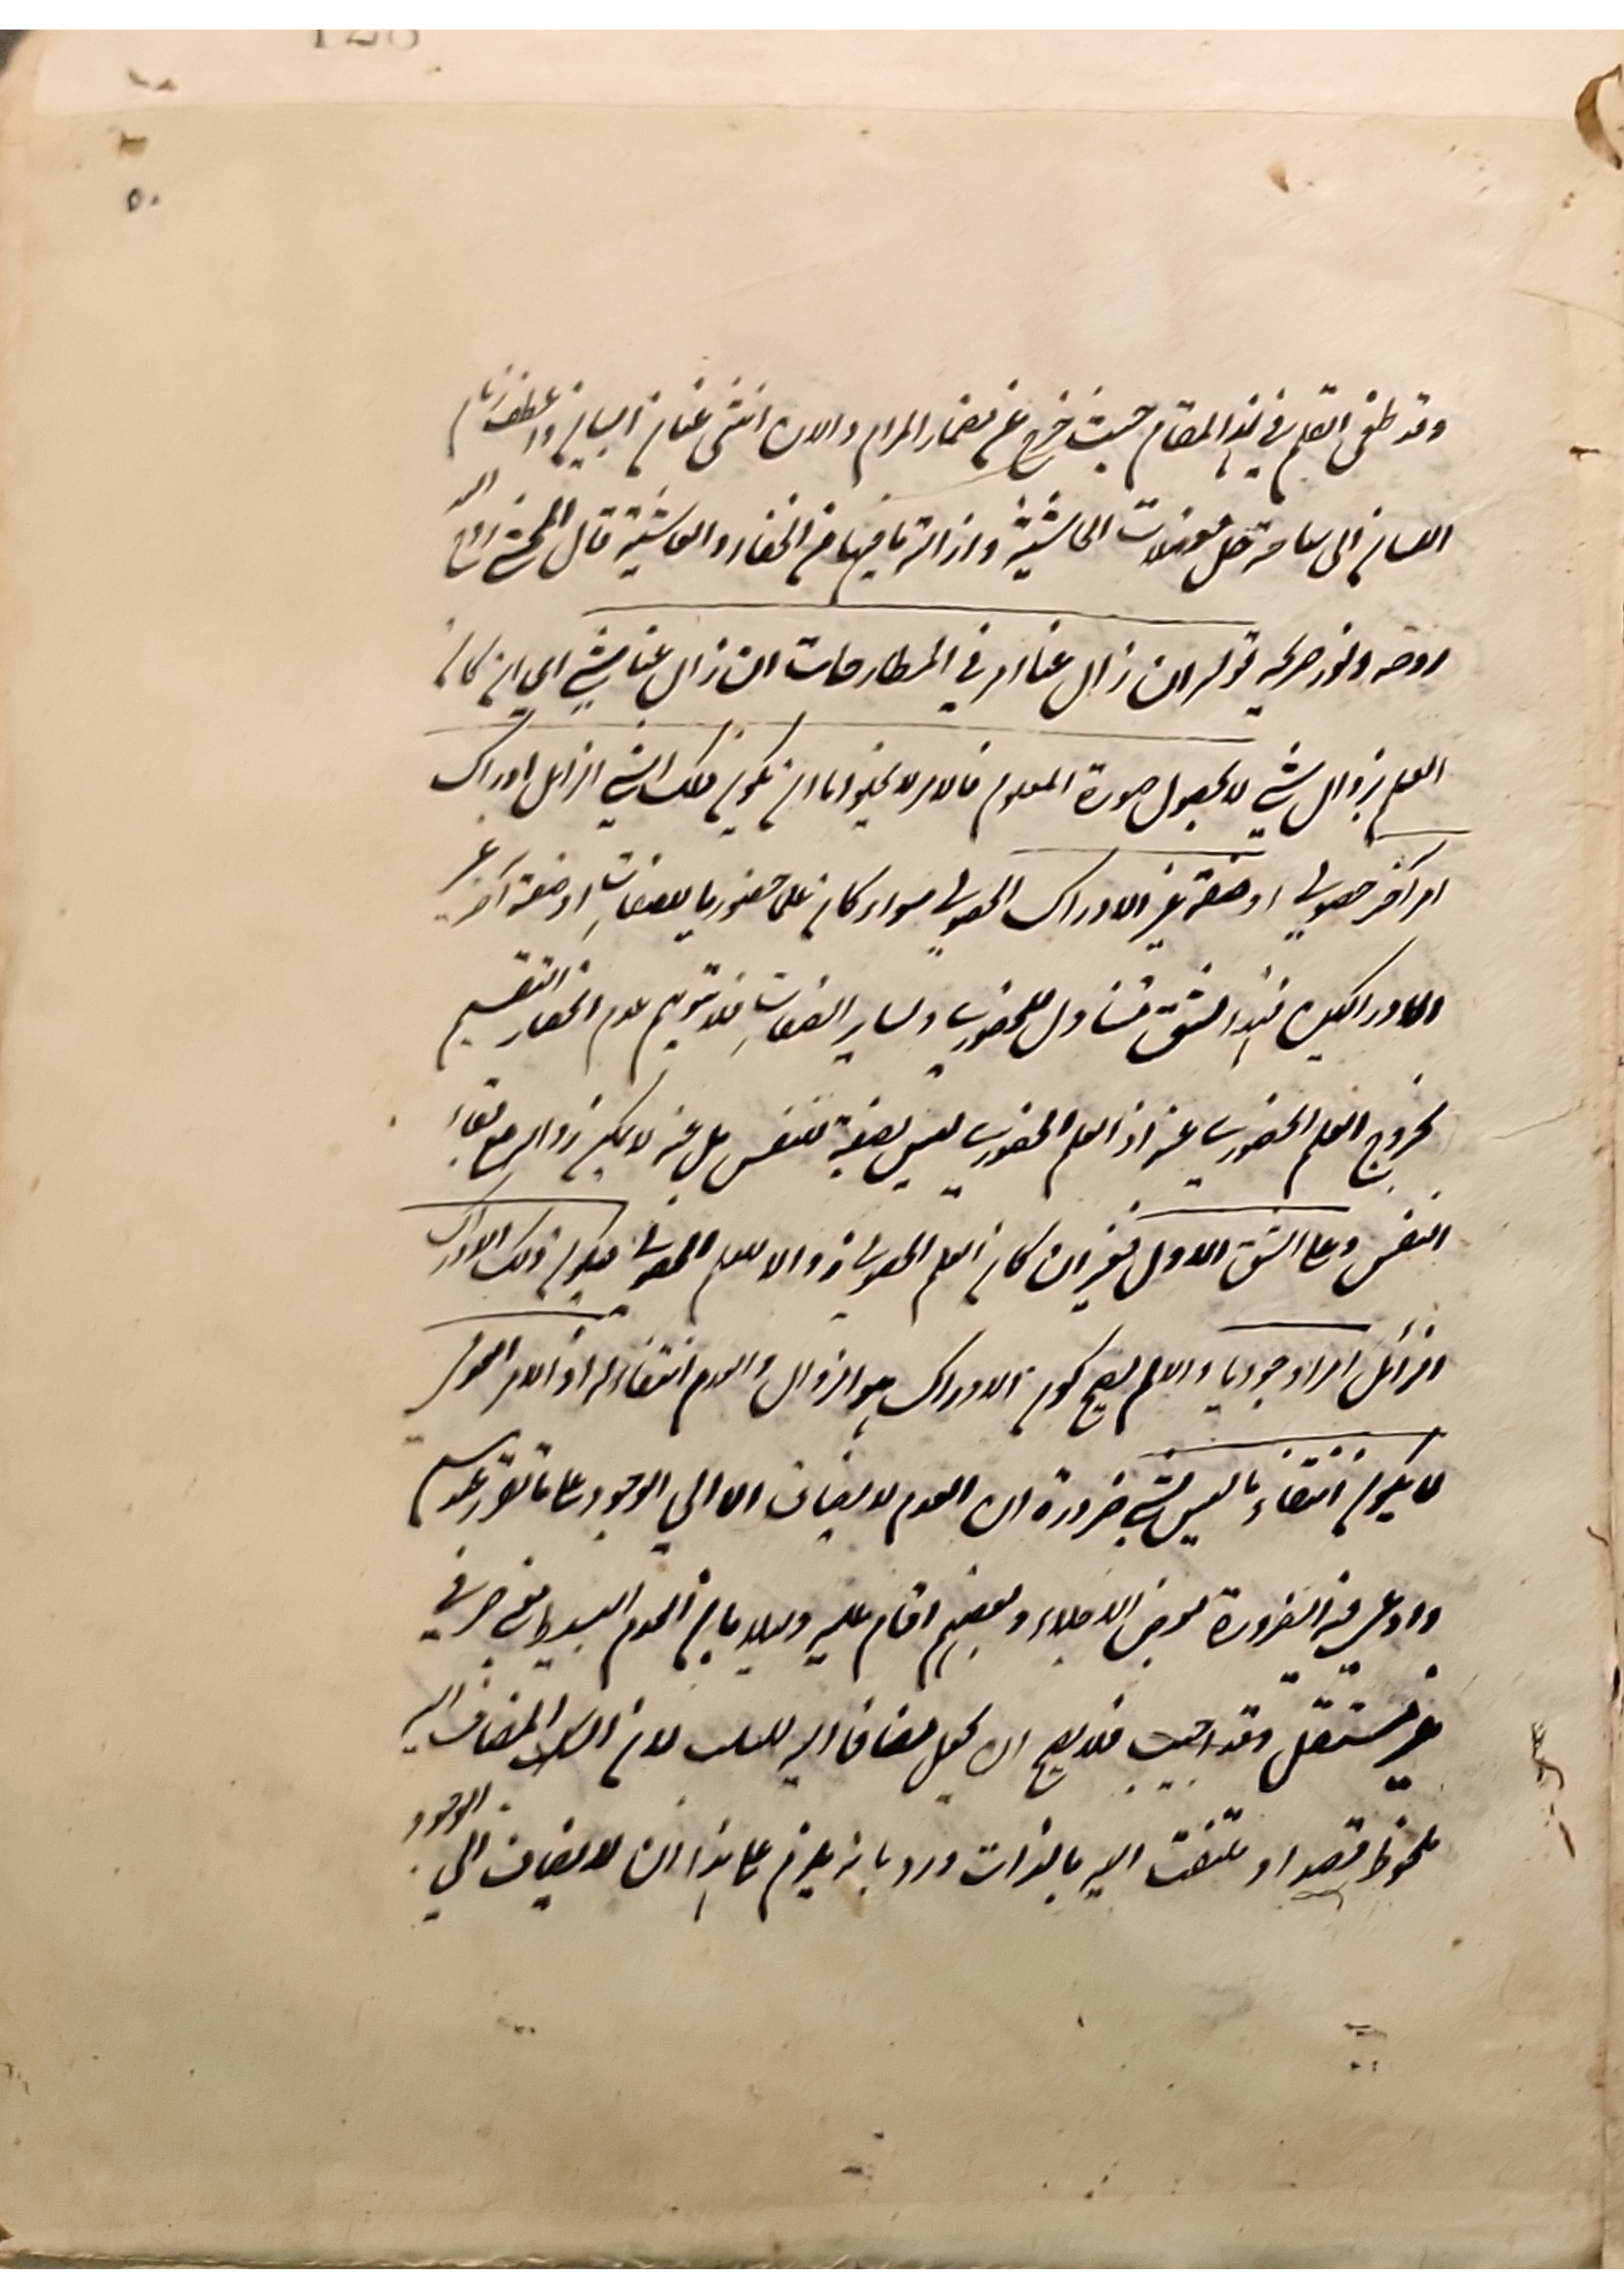 وقد طغى القلم في هذا المقام حيث خرج عن مضمار المرام والان انثنى عنان البيان واعطف زمام
اللسان الى ساحة حل معضلات الحاشية وازالة ما فيها من الخفاء والغاشية قال المحشي روح الله
روحه ونور ضريحه قوله ان زال عنا امر في المطارحات ان زال عنا شيء اي بان كان
العلم زوال شيء لا بحصول صورة المعلوم فالامر لا يخلو اما ان يكون ذلك الشيء الزايل ادراك
امر آخر حصولي او صفة غير الادراك الحصولي سواء كان علما حضوريا بالصفات او صفة اخرى غير
الادراك فهذا الشق متناول للحضوري وساير الصفات فلا يتوهم عدم انحصار التقسيم
بخروج العلم الحضوري عنه اذ العلم الحضوري ليس بصفة للنفس بل عنه لا يمكن زواله مع بقاء
النفس وعلى الشق الاول فغير ان كان العلم الحصولي زوالا للعلم الحصولي فيكون ذلك الادراك
الزائل امرا وجوديا والا لم يصح كون الادراك هو الزوال والعدم انتفاء له اذ الامر العدمي
لا يكون انتفاء ما ليس بشيء ضرورة ان العدم لا يضاف الا الى الوجود على ما تقرر عندهم
وادعى فيه الضرورة بعض الاجلاء وبعضهم اقام عليه دليلا بان العدم البسيط معنى حرفي
غير مستقل وقد اجيب فلا يصح ان يجعل مضافا اليه للسلب لان السلب المضاف اليه
ملحوظ قصدا وملتفت اليه بالذات ورد بانه يلزم على هذا ان لا يضاف الى الوجود